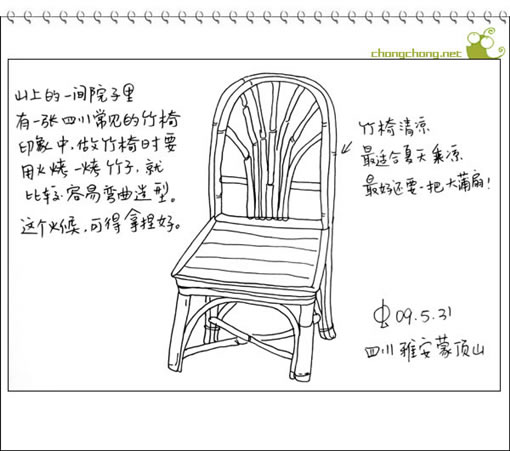 chongchong.net
山上的一间院子里
有一张四川常见的竹椅
印象中,做竹椅时要
用火烤一烤竹子,就
比较容易弯曲造型。
这个火候,可得拿捏好。
竹椅清凉
最适合夏天乘凉
最好还要一把大蒲扇!
09.5.31
四川雅安蒙顶山